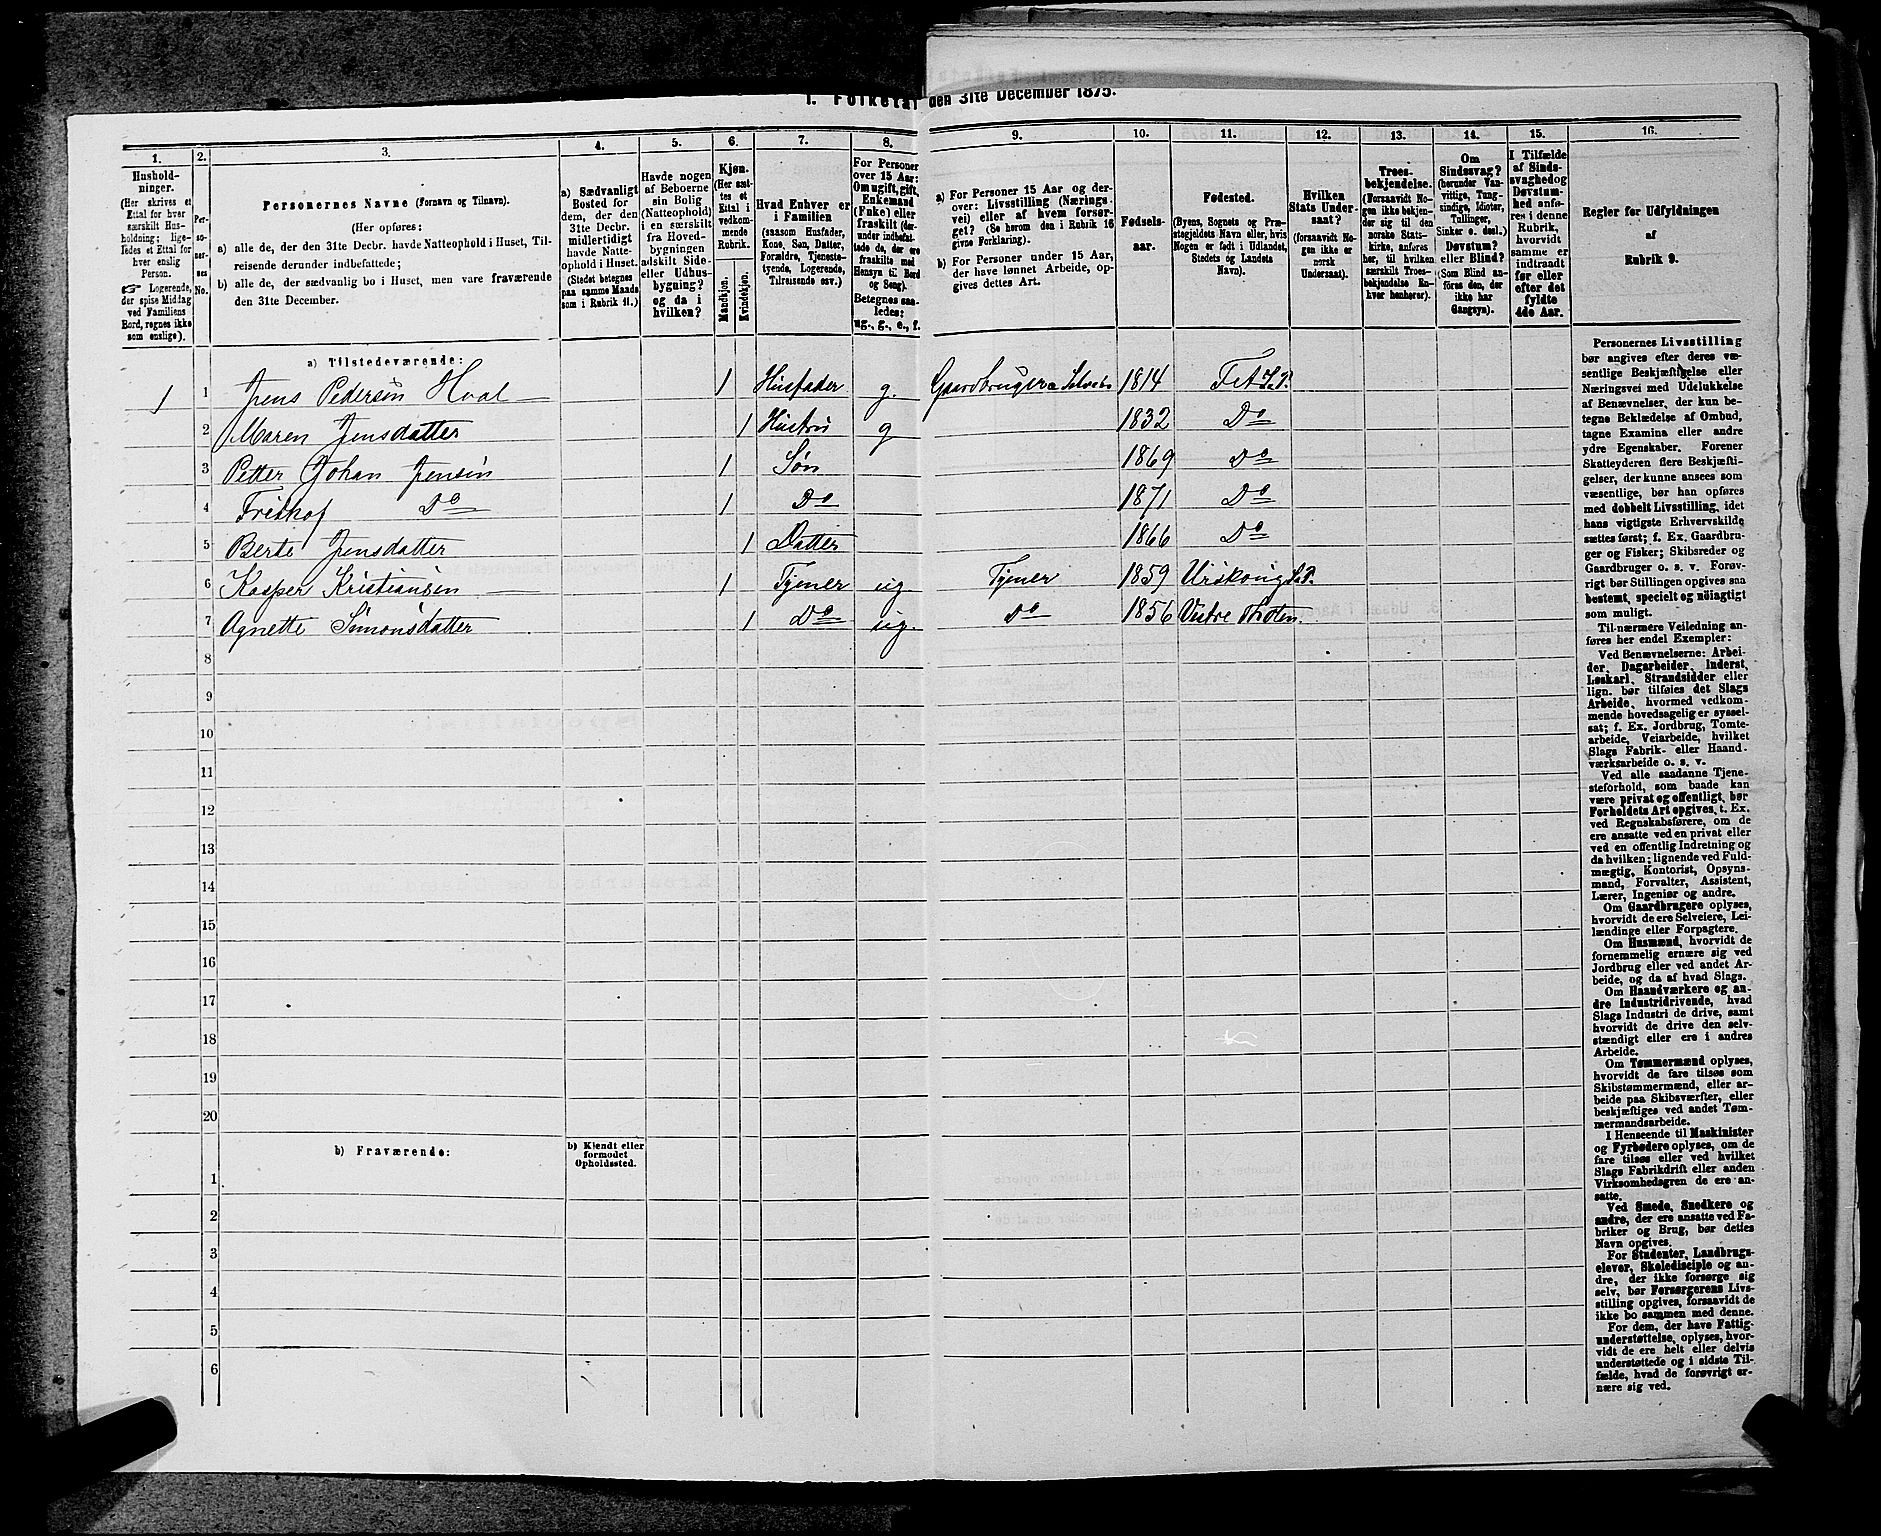 1. Folketal den 31te December 1875.
1. 2. 3. 4. 5. 6. 7. 8. 9. 10. 11. 12. 13. 14. 15. 16.
Hushold-
ninger.
(Her skrives et
Ettal for hver
særskilt Hus-
holdning; lige-
ledes et Ettal for
hver enslig
Person.
☞ Logerende,
der spise Middag
ved Familiens
Bord, regnes ikke
som enslige).
Per-
so-
ner-
nes
No.
Personernes Navne (Fornavn og Tilnavn).
(Her opføres:
a) alle de, der den 31te Decbr. havde Natteophold i Huset, Til-
reisende derunder indbefattede;
b) alle de, sædvanlig bo i Huset, men vare fraværende
den 31te December.
a) Sædvanligt
Bosted for
dem, der den
31te Decbr.
midlertidigt
havde Natte-
ophold i Huset.
(Stedet betegnes
paa samme Maade
som i Rubrik 11.)
Havde nogen
af Beboerne
sin Bolig
(Natteophold)
i en særskilt
fra Hoved-
bygningen
adskilt Side-
eller Udhus-
bygning?
og da i
hvilken?
Kjøn.
(Her sæt-
tes et
Ettal i
vedkom-
mende
Rubrik.
Mandkjøn.
Kvindekjøn.
Hvad Enhver er
i Familien
(saasom Husfader,
Kone, Søn, Datter,
Forældre, Tjeneste-
tyende, Logerende,
Tilreisende osv.)
For Personer
over 15 Aar:
Om ugift, gift,
Enkemand
(Enke) eller
fraskilt (der-
under indbefat-
tede de, der ere
fraskilte med
Hensyn til Bord
og Seng).
Betegnes saa-
ledes:
ug., g., e., f.
a) For Personer 15 Aar og der-
over: Livsstilling (Nærings-
vei) eller af hvem forsør-
get? (Se herom den i Rubrik 16
givne Forklaring).
b) For Personer under 15 Aar,
der have lønnet Arbeide, op-
gives dettes Art.
Fødsels-
aar.
Fødested.
(Byens, Sognets og Præ-
stegjeldets Navn eller, hvis
Nogen er født i Udlandet,
Stedets og Landets
Navn).
Hvilken
Stats Under-
saat?
(forsaavidt No-
gen ikke er
norsk
Undersaat).
Troes-
bekjendelse.
(Forsaavidt No-
gen ikke bekjen-
der sig til den
norske Stats-
kirke, anføres
her, til hvilken
særskilt Troes-
bekjendelse En-
hver henhører).
Om
Sindssvag?
(herunder Van-
vittige, Tung-
sindige, Idioter,
Tullinger,
Sinker o. desl.)
Døvstum?
eller Blind?
(Som Blind an-
føres den, der
ikke har
Gangsyn).
I Tilfælde
af Sinds-
svaghed og
Døvstum-
hed anfø-
res i denne
Rubrik,
hvorvidt
samme er
indtraadt
før eller
efter det
fyldte
4de Aar.
Regler for Udfyldningen
af
Rubrik 9.
a) Tilstedeværende:
1 1 Jens Pedersen Hval 1 Husfader g. Gaardbruger 1814 Fet S. P.
2 Maren Jensdatter 1 Hustru g 1832 Do
3 Petter Johan Jensen 1 Søn 1869 Do
4 Frithof Do 1 Do 1871 Do
5 Berte Jensdatter 1 Datter 1866 Do
6 Kasper Kristiansen 1 Tjener ug Tjener 1859 Urskoug S. P.
7 Agnette Simonsdatter 1 Do ug. Do 1856 Vestre Thoten.
8
9
10
11
12
13
14
15
16
17
18
19
20
b) Fraværende:
b) Kjendt eller
formodet
Opholdssted.
1
2
3
4
5
6
Personernes Livsstilling
bør angives efter deres væ-
sentlige Beskjæftigelse eller
Næringsvei med Udelukkelse
af Benævnelser, der kun be-
tegne Beklædelse af Ombud,
tagne Examina eller andre
ydre Egenskaber. Forener
Skatteyderen flere Beskjæfti-
gelser, der kunne ansees som
væsentlige, bør han opføres
med dobbelt Livsstilling, idet
hans vigtigste Erhvervskilde
sættes først; f. Ex. Gaardbru-
ger og Fisker; Skibsreder og
Gaardbruger o. s. v. Forøv-
rigt bør Stillingen opgives saa
bestemt, specielt og nøiagtigt
som muligt.
Til nærmere Veiledning an-
føres her endel Exempler:
Ved Benævnelserne: Arbei-
der, Dagarbeider, Inderst,
Løskarl, Strandsidder eller
lign. bør tilføies det Slags
Arbeide, hvormed vedkom-
mende hovedsagelig er syssel-
sat; f. Ex. Jordbrug, Tomte-
arbeide, Veiarbeide, hvilket
Slags Fabrik- eller Haand-
værksarbeide o. s. v.
Ved alle saadanne Tjene-
steforhold, som baade kan
være privat og offentligt, bør
Forholdets Art opgives, t. Ex.
ved Regnskabsførere, om de
ere ansatte ved en privat eller
ved en offentlig Indretning og
da hvilken; lignende ved Fuld-
mægtig, Kontorist, Opsyns-
mand, Forvalter, Assistent,
Lærer, Ingeniør og andre.
Om Gaardbrugere oplyses,
hvorvidt de ere Selveiere, Lei-
lændinge eller Forpagtere.
Om Husmænd, hvorvidt de
fornemmelig ernære sig ved
Jordbrug eller ved andet Ar-
beide, og da af hvad Slags.
Om Haandværkere og an-
dre Industridrivende, hvad
Slags Industri de drive, samt
hvorvidt de drive den selv-
stændigt eller ere i andres
Arbeide.
Om Tømmermænd oplyses,
hvorvidt de fare tilsøs som
Skibstømmermænd, eller ar-
beide paa Skibsværfter, eller
beskjæftiges ved andet Tøm-
mermandsarbeide.
I Henseende til Maskinister
og Fyrbødere oplyses, om de
fare tilsøs eller ved hvilket
Slags Fabrikdrift eller anden
Virksomhedsgren de ere an-
satte.
Ved Smede, Snedkere og
andre, der ere ansatte ved Fa-
briker og Brug, bør dettes
Navn opgives.
For Studenter, Landbrugs-
elever, Skoledisciple og an-
dre, der ikke forsørge sig
selv, bør Forsørgerens Livs-
stilling opgives, forsaavidt de
ikke bo sammen med denne.
For dem, der have Fattig-
understøttelse, oplyses, hvor-
vidt de ere helt eller delvis
understøttede og i sidste Til-
fælde, hvad de forøvrigt er-
nære sig ved.